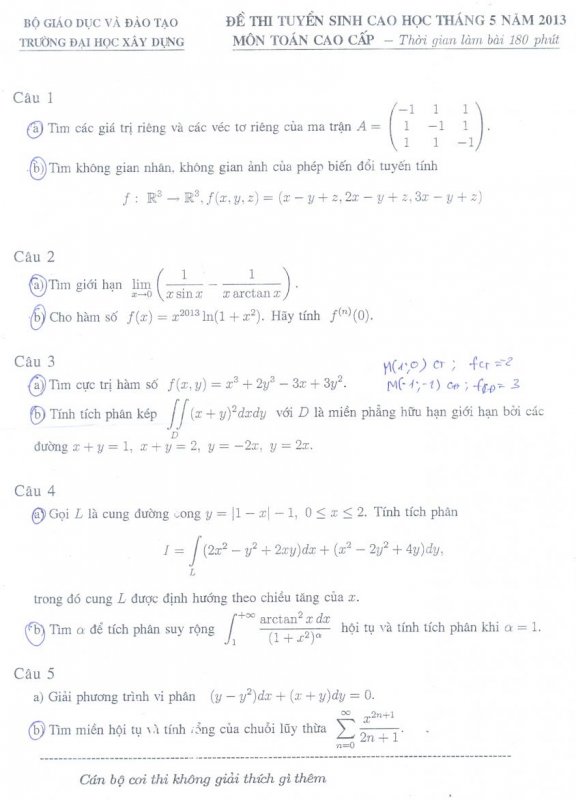 BỘ GIÁO DỤC VÀ ĐÀO TẠO
TRƯỜNG ĐẠI HỌC XÂY DỰNG
ĐỀ THI TUYỂN SINH CAO HỌC THÁNG 5 NĂM 2013
MÔN TOÁN CAO CẤP – Thời gian làm bài 180 phút
Câu 1
a) Tìm các giá trị riêng và các véc tơ riêng của ma trận A = \begin{pmatrix} -1 & 1 & 1 \\ 1 & -1 & 1 \\ 1 & 1 & -1 \end{pmatrix}.
b) Tìm không gian nhân, không gian ảnh của phép biến đổi tuyến tính
f : ℝ³ → ℝ³, f(x, y, z) = (x − y + z, 2x − y + z, 3x − y + z)
Câu 2
a) Tìm giới hạn \lim_{x→0} \left( \frac{1}{x \sin x} − \frac{1}{x \arctan x} \right).
b) Cho hàm số f(x) = x²⁰¹³ ln(1 + x²). Hãy tính f⁽ⁿ⁾(0).
Câu 3
M(1;0) CT ; f_{CT} = -2
a) Tìm cực trị hàm số f(x, y) = x³ + 2y³ − 3x + 3y².
M(-1;-1) CĐ ; f_{CĐ} = 3
b) Tính tích phân kép \iint_D (x + y)² dxdy với D là miền phẳng hữu hạn giới hạn bởi các
đường x + y = 1, x + y = 2, y = −2x, y = 2x.
Câu 4
a) Gọi L là cung đường cong y = |1 − x| − 1, 0 ≤ x ≤ 2. Tính tích phân
I = \int_L (2x² − y² + 2xy)dx + (x² − 2y² + 4y)dy,
trong đó cung L được định hướng theo chiều tăng của x.
b) Tìm α để tích phân suy rộng \int_1^{+∞} \frac{\arctan² x dx}{(1 + x²)^α} hội tụ và tính tích phân khi α = 1.
Câu 5
a) Giải phương trình vi phân (y − y²)dx + (x + y)dy = 0.
b) Tìm miền hội tụ và tính tổng của chuỗi lũy thừa \sum_{n=0}^{∞} \frac{x^{2n+1}}{2n + 1}.
Cán bộ coi thi không giải thích gì thêm